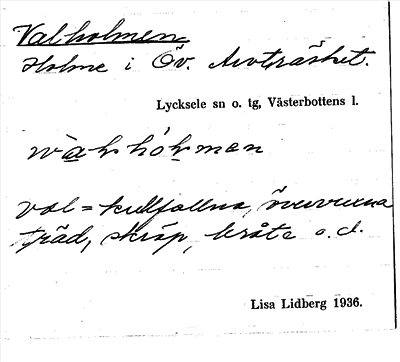 Valholmen
Holme i Öv. Arvträsket.
Lycksele sn o. tg, Västerbottens l.
val = kullfallna, övervuxna
träd, skräp, bråte o.d.
Lisa Lidberg 1936.